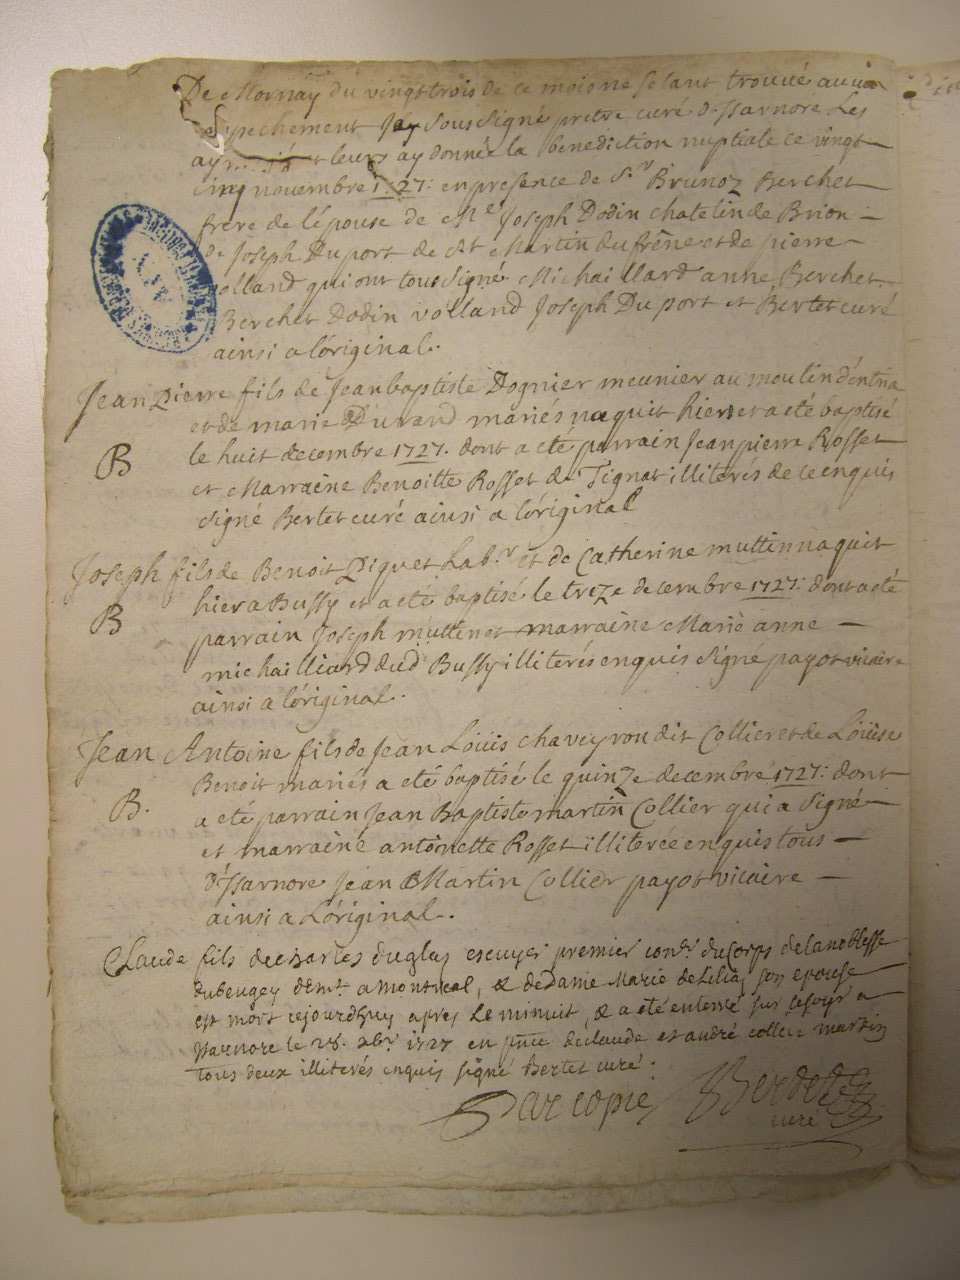 De Mornay du vingt trois de ce mois ne setant trouvé aucun
empechement Jay sous signé pretre curé d'Isarnore Les
ay et leurs ay donnée la benediction nuptiale ce vingt
cinq novembre 1727: en presence de Sr Brunoz Berchet
frere de l'épouse de Me Joseph Dodin chatelin de Brion
de Joseph Duport de St Martin du frêne et de pierre
volland qui ont tous signé Michaillard anne Berchet
Berchet Dodin volland Joseph Duport et Bertet curé
ainsi a l'original.
Jean pierre fils de Jean baptiste Dognier meunier au moulin
et de marie Durand mariés naquit hier et a eté baptisé
B
le huit decembre 1727. dont a eté parrain Jean pierre Rosset
et Marraine Benoitte Rosset de Tignat illiterés de ce enquis
signé Bertet curé ainsi a l'original
Joseph fils de Benoit Piquet Labr et de Catherine muttin naquit
hier a Bussy et a eté baptisé le treze decembre 1727: dont a eté
B
parrain Joseph muttin et marraine Marie anne
michaillard dud Bussy illiterés enquis signé payot vicaire
ainsi a l'original.
Jean Antoine fils de Jean Loüis chaveyron dit Collier et de Loüise
Benoit mariés a eté baptisé le quinze decembre 1727: dont
B.
a eté parrain Jean Baptiste martin Collier qui a signé
et marraine antoinette Rosset illiterée enquis tous
d'Isarnore Jean Martin Collier payot vicaire
ainsi a L'original.
Claude fils de charles duglas escuyer premier conr du Corps de la noblesse
du beugey demt a montreal, & de Dame Marie de Lilia son epouse
est mort cejourdhuy apres Le minuit, & a eté enterré sur le soir a
Isarnore le 28. xbr 1727 en pnce de claude et andré collier martin
tous deux illiterés enquis signé Bertet curé.
Par copie
curé